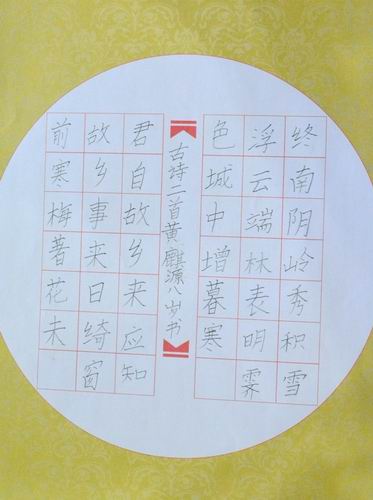 终南阴岭秀积雪
浮云端林表明霁
色城中增暮寒
古诗二首黄麒源八岁书
君自故乡来应知
故乡事来日绮窗
前寒梅著花未